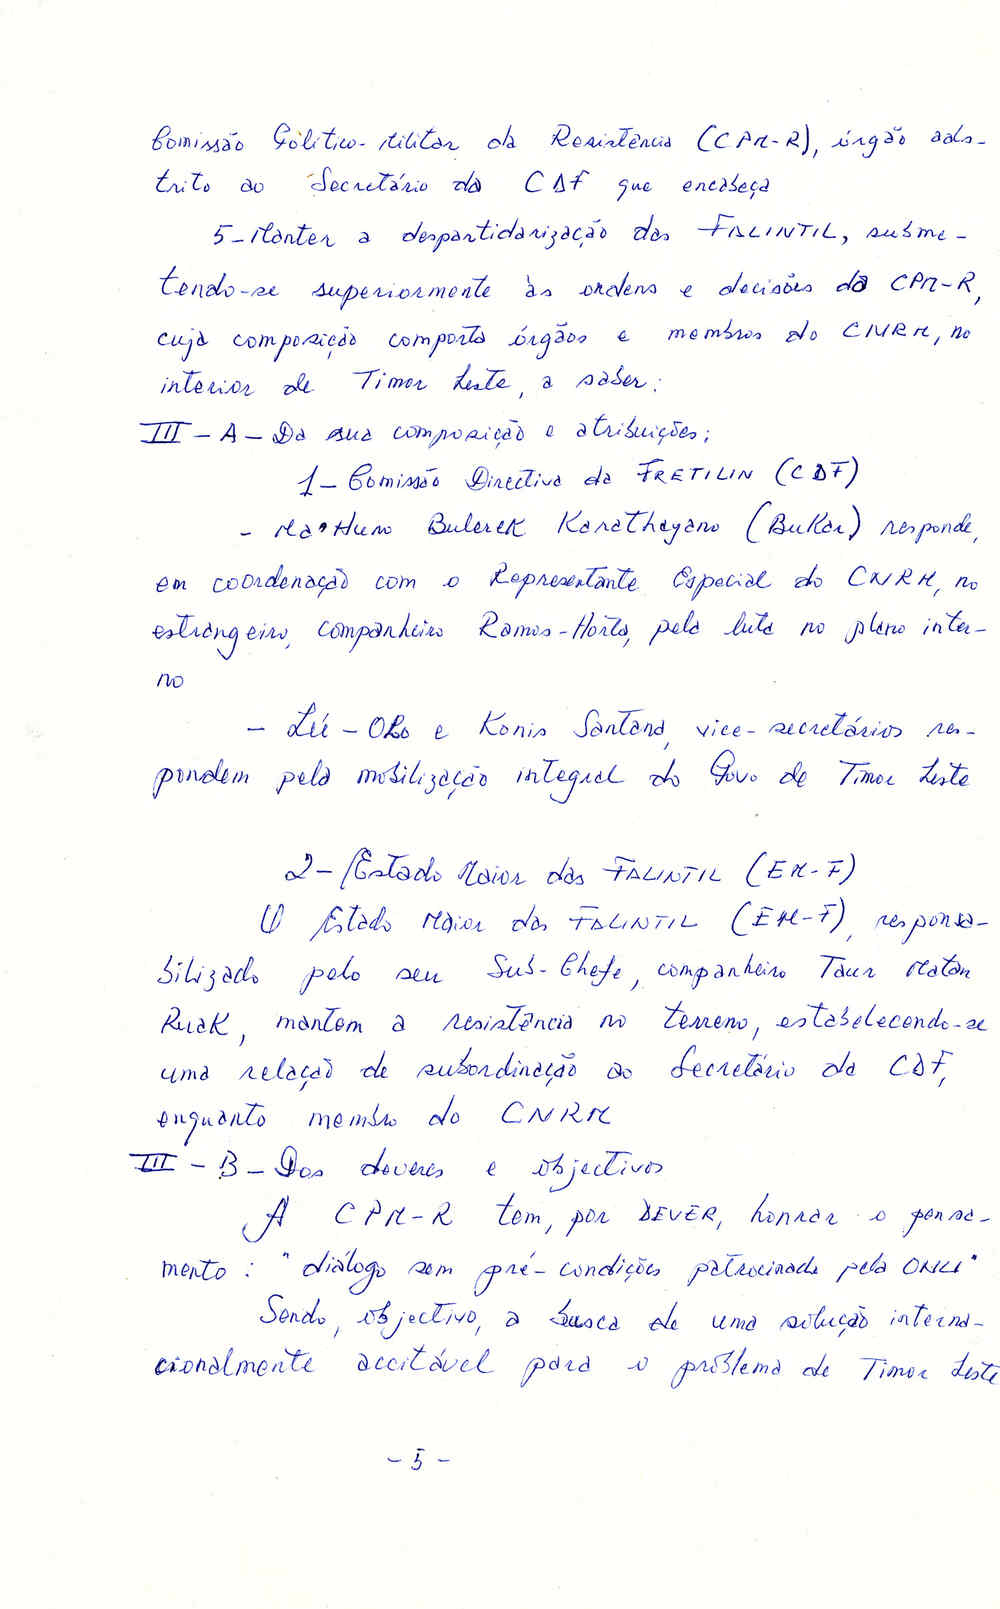 Comissão Político-Militar da Resistência (CPM-R), órgão ads-
trito ao Secretário da CDF que encabeça
5-Manter a despartidarização das FALINTIL, subme-
tendo-se superiormente às ordens e decisões da CPM-R,
cuja composição comporta órgãos e membros do CNRM, no
interior de Timor Leste, a saber:
III - A - Da sua composição e atribuições;
1- Comissão Directiva da FRETILIN (CDF)
- Ma'Huno Bulerek Karathayano (Bukar) responde,
em coordenação com o Representante Especial do CNRM, no
estrangeiro, companheiro Ramos-Horta, pela luta no plano inter-
no
- Lú-Olo e Konis Santana, vice-secretários res-
pondem pela mobilização integral do Povo de Timor Leste
2- Estado Maior das FALINTIL (EM-F)
O Estado Maior das FALINTIL (EM-F), responsa-
bilizado pelo seu Sub-Chefe, companheiro Taur Matan
Ruak, mantem a resistência no terreno, estabelecendo-se
uma relação de subordinação ao Secretário da CDF,
enquanto membro do CNRM
III - B - Dos deveres e objectivos
A CPM-R tem, por DEVER, honrar o pensa-
mento: "diálogo sem pré-condições patrocinado pela ONU"
Sendo, objectivo, a busca de uma solução interna-
cionalmente aceitável para o problema de Timor Leste
- 5 -